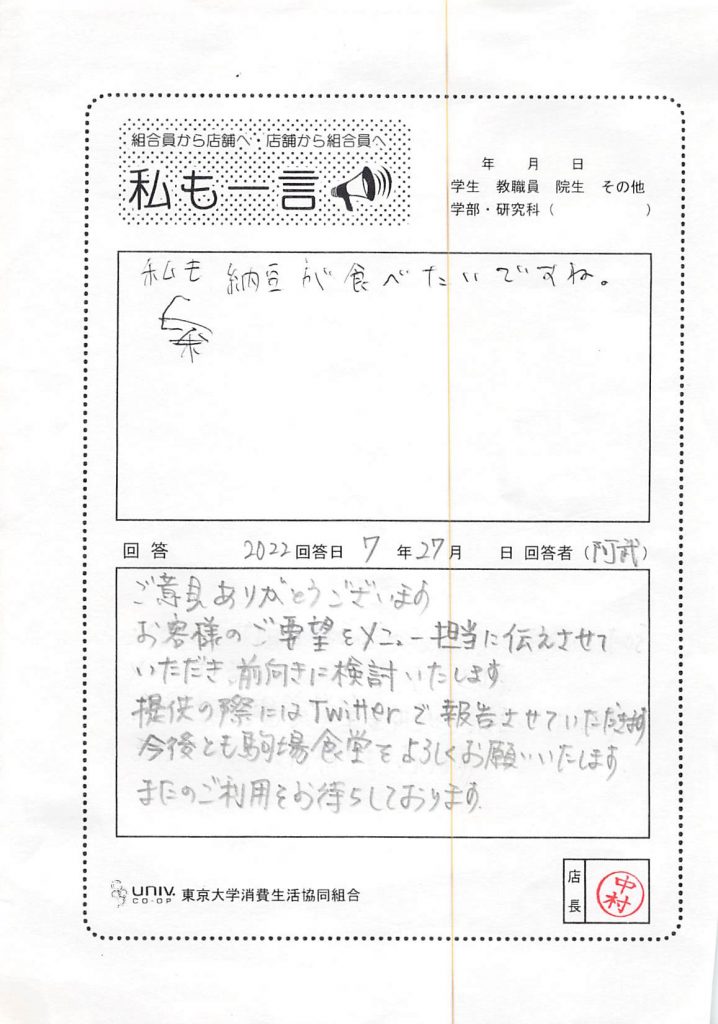 組合員から店舗へ・店舗から組合員へ
私も一言
年 月 日
学生 教職員 院生 その他
学部・研究科( )
私も納豆が食べたいですね。
回答 2022回答日 7年27月 日 回答者(阿武)
ご意見ありがとうございます
お客様のご要望をメニュー担当に伝えさせて
いただき、前向きに検討いたします
提供の際にはTwitterで報告させていただきます
今後とも駒場食堂をよろしくお願いいたします
またのご利用をお待ちしております。
UNIV. CO-OP 東京大学消費生活協同組合
店長
中村